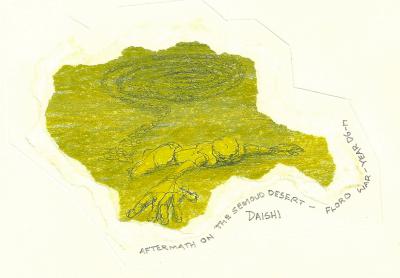 AFTERMATH ON THE SEMOUD DESERT — FLORO WAR — YEAR
DAISHI